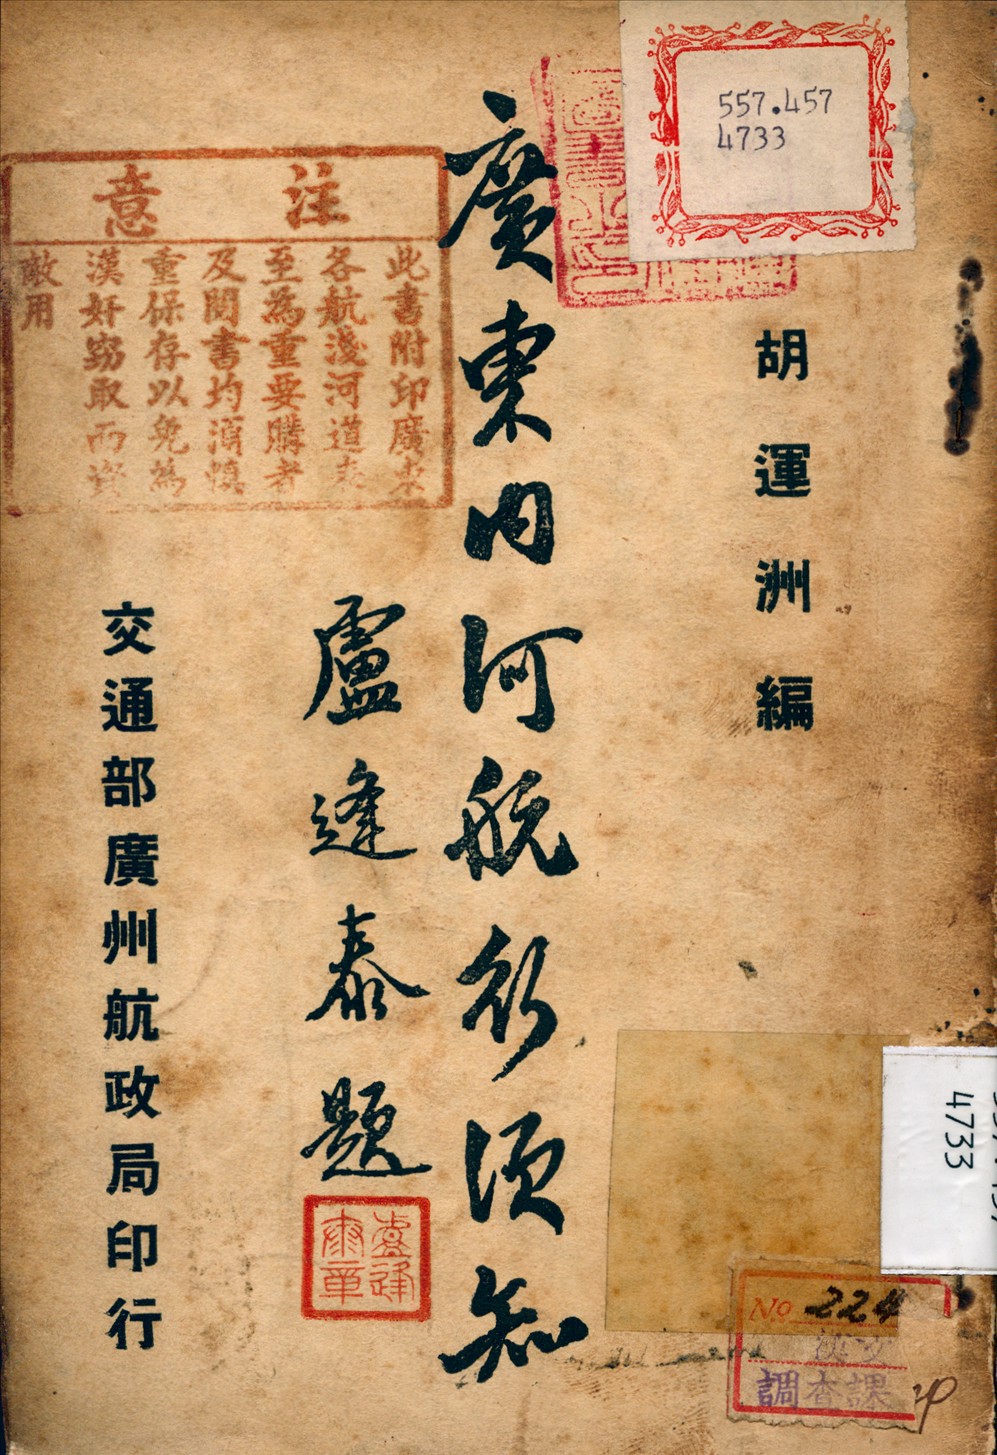 557.457
4733
胡運洲編
廣東內河航行須知
盧逢泰題
盧逢泰章
交通部廣州航政局印行
注意
此書附印廣東
各航淺河道表
至為重要購者
及閱書均須慎
重保存以免為
漢奸窃取而資
敵用
4733
No 224
調查課